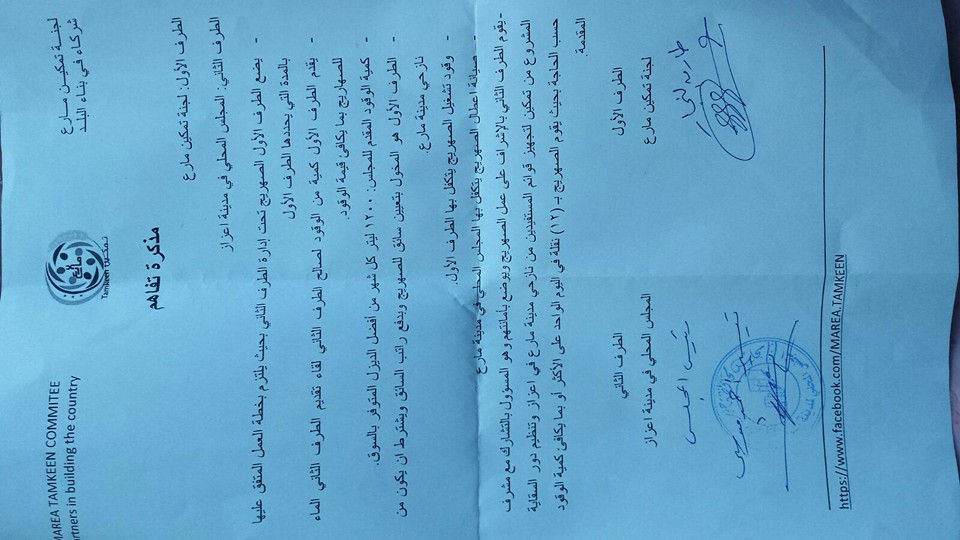 لجنة تمكين مارع
شركاء في بناء البلد
MAREA TAMKEEN COMMITEE
artners in building the country
مارع
تمكين
Tamkeen
مذكرة تفاهم
الطرف الأول: لجنة تمكين مارع
الطرف الثاني: المجلس المحلي في مدينة اعزاز
- يضع الطرف الأول الصهريج تحت إدارة الطرف الثاني بحيث يلتزم بخطة العمل المتفق عليها
بالمدة التي يحددها الطرف الأول
- يقدم الطرف الأول كمية من الوقود لصالح الطرف الثاني لقاء تقديم الطرف الثاني الماء
للصهاريج بما يكافئ قيمة الوقود.
- كمية الوقود المقدم للمجلس: ١٢٠٠ ليتر كل شهر من أفضل الديزل المتوفر بالسوق.
- الطرف الأول هو المخول بتعيين سائق للصهريج ويدفع راتب السائق ويشترط ان يكون من
نازحي مدينة مارع.
- وقود تشغيل الصهريج يتكفل بها الطرف الأول.
- صيانة اعطال الصهريج يتكفل بها المجلس المحلي في مدينة مارع
- يقوم الطرف الثاني بالإشراف على عمل الصهريج ويوضع بأمانتهم وهو المسؤول بالتشارك مع مشرف
المشروع من تمكين لتجهيز قوائم المستفيدين من نازحي مدينة مارع في اعزاز وتنظيم دور السقاية
حسب الحاجة بحيث يقوم الصهريج بـ (١٢) نقلة في اليوم الواحد على الأكثر أو بما يكافئ كمية الوقود
المقدمة.
الطرف الأول
لجنة تمكين مارع
الطرف الثاني
المجلس المحلي في مدينة اعزاز
رئيس المجلس
https://www.facebook.com/MAREA.TAMKEEN